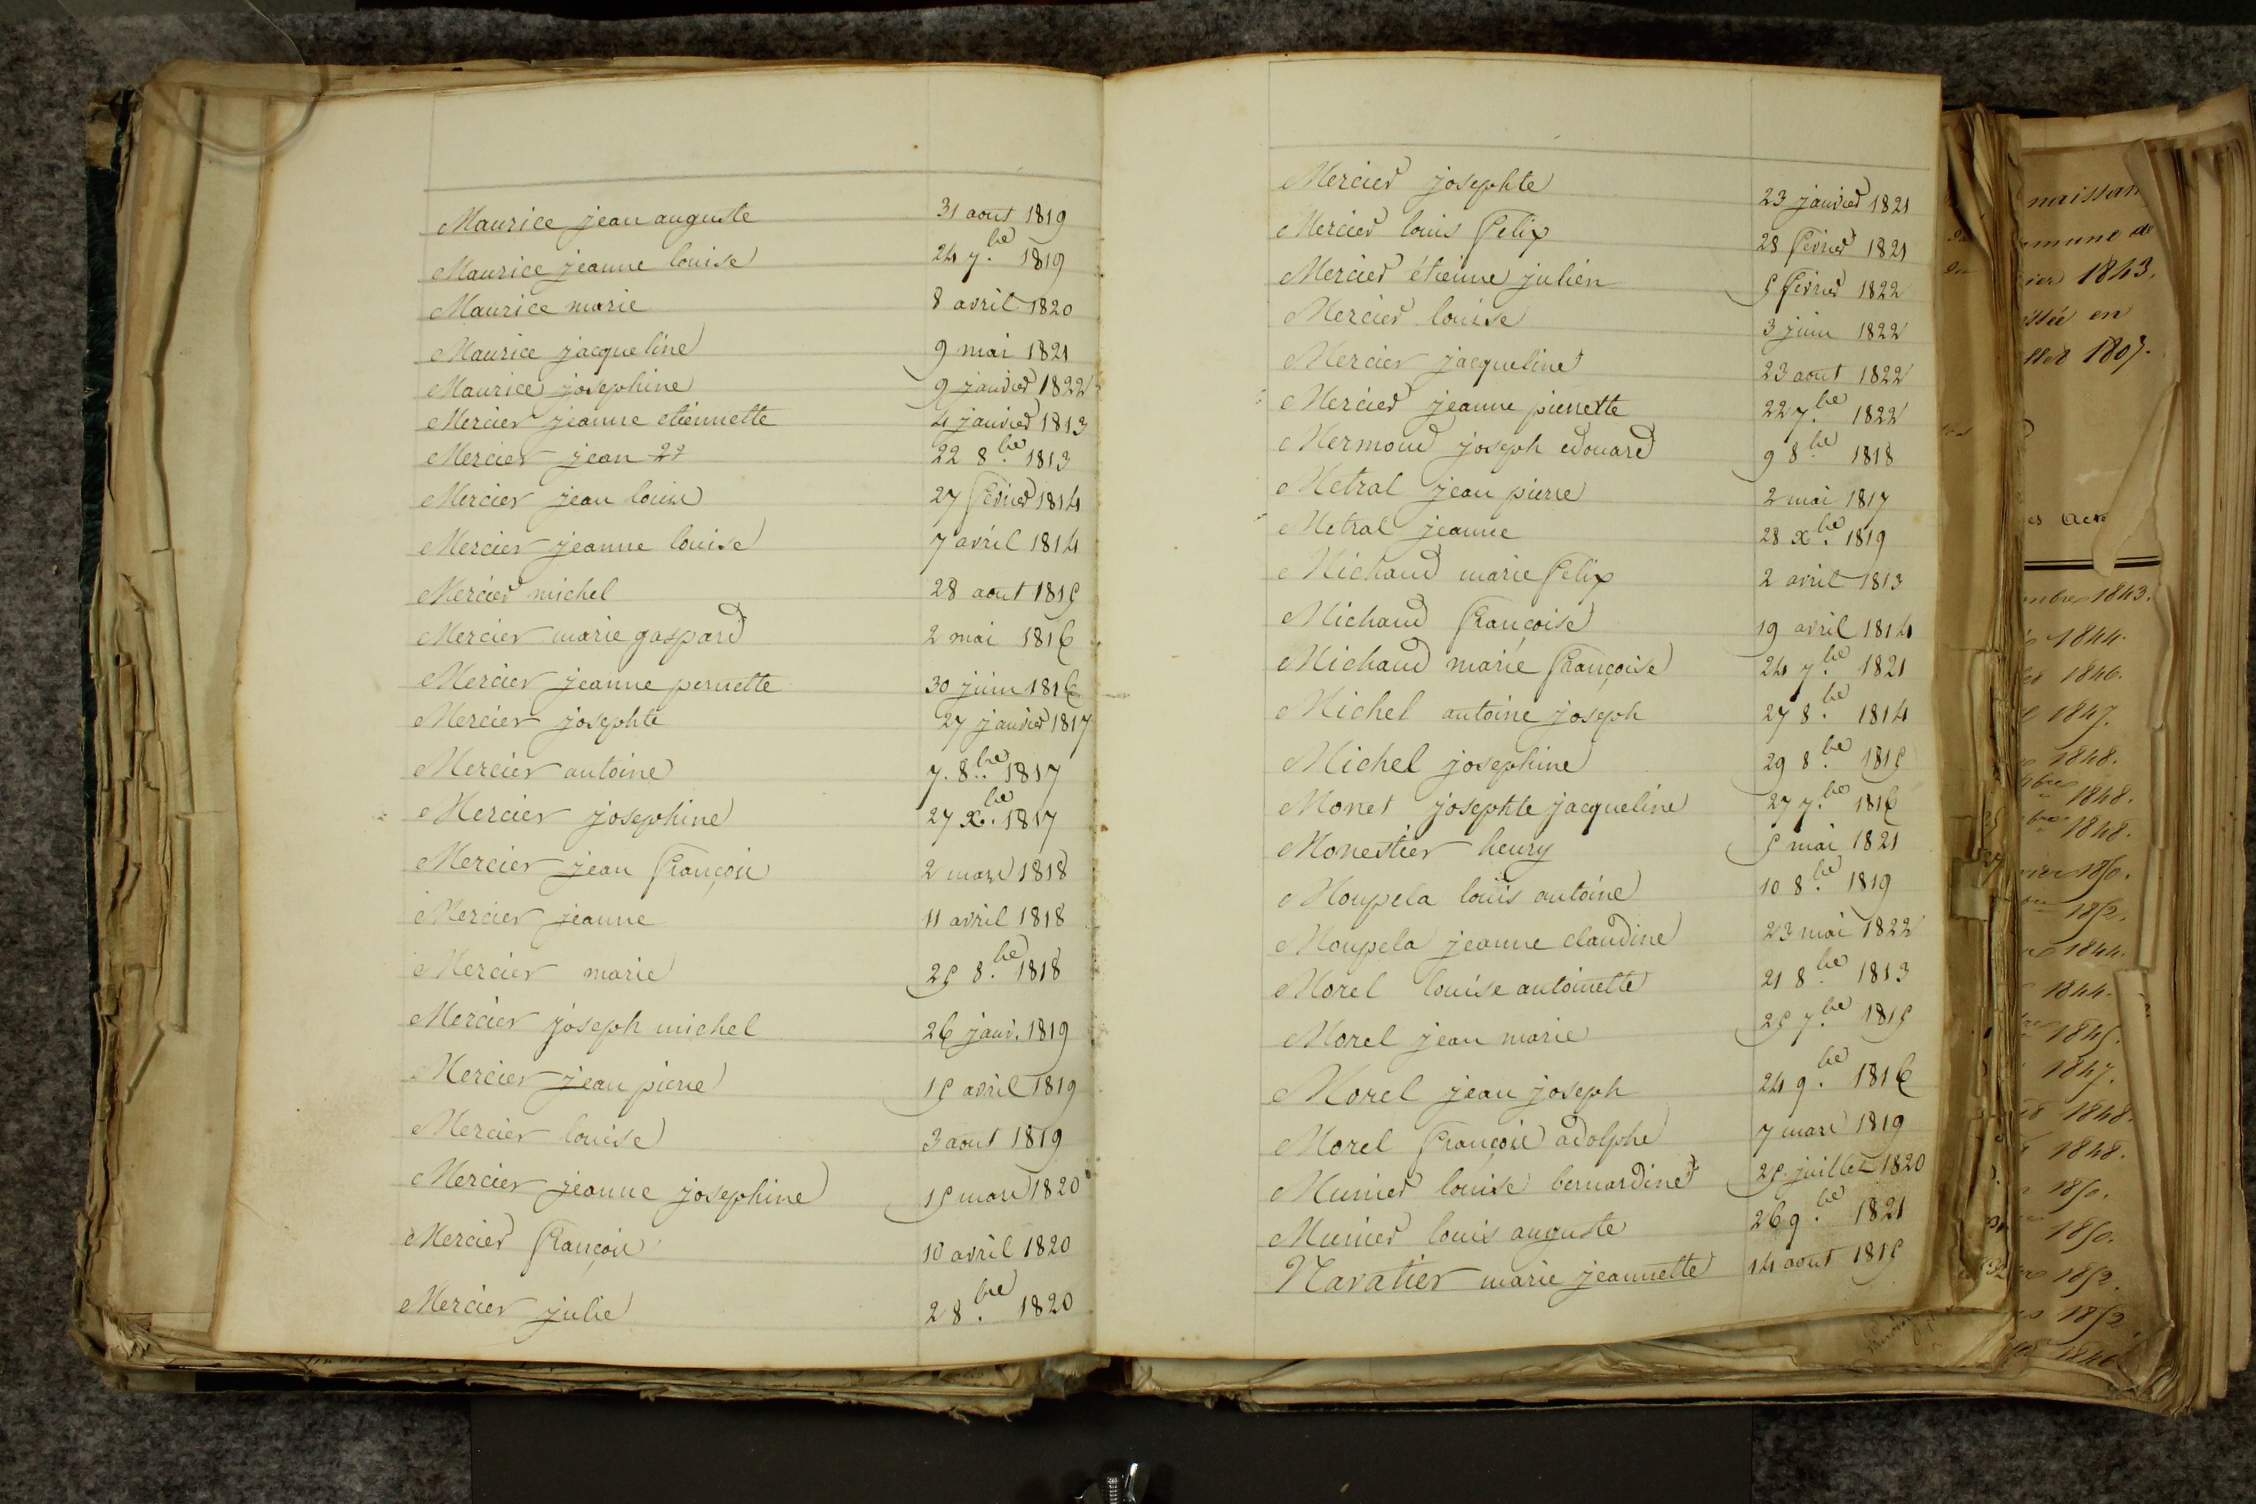 Maurice jean auguste 31 aout 1819
Maurice jeanne louise 24 7.bre 1819
Maurice marie 8 avril 1820
Maurice jacqueline 9 mai 1821
Maurice josephine 9 janvier 1822
Mercier jeanne etiennette 4 janvier 1813
Mercier jean 22 8.bre 1813
Mercier jean louis 27 février 1814
Mercier jeanne louise 7 avril 1814
Mercier michel 28 aout 1815
Mercier marie gaspard 2 mai 1816
Mercier jeanne pernette 30 juin 1816
Mercier josephte 27 janvier 1817
Mercier antoine 7. 8.bre 1817
Mercier josephine 27 X.bre 1817
Mercier jean françois 2 mars 1818
Mercier jeanne 11 avril 1818
Mercier marie 25 8.bre 1818
Mercier joseph michel 26 janv. 1819
Mercier jean pierre 15 avril 1819
Mercier louise 3 aout 1819
Mercier jeanne josephine 15 mars 1820
Mercier françois 10 avril 1820
Mercier julie 2 8.bre 1820
Mercier josephte 23 janvier 1821
Mercier louis felix 28 février 1821
Mercier étienne julien 5 février 1822
Mercier louise 3 juin 1822
Mercier jacqueline 23 aout 1822
Mercier jeanne pierrette 22 7.bre 1822
Mermoud joseph edouard 9 8.bre 1818
Metral jean pierre 2 mai 1817
Metral jeanne 28 X.bre 1819
Michaud marie felix 2 avril 1813
Michaud françoise 19 avril 1814
Michaud marie françoise 24 7.bre 1821
Michel antoine joseph 27 8.bre 1814
Michel josephine 29 8.bre 1815
Monet josephte jacqueline 27 7.bre 1816
Monestier henry 5 mai 1821
Moupela louis antoine 10 8.bre 1819
Moupela jeanne claudine 23 mai 1822
Morel louise antoinette 21 8.bre 1813
Morel jean marie 25 7.bre 1815
Morel jean joseph 24 9.bre 1816
Morel françois adolphe 7 mars 1819
Munier louise bernardine 25 juillet 1820
Munier louis auguste 26 9.bre 1821
Navatier marie jeannette 14 aout 1815
1843.
en
1807.
1843.
1844.
1846.
1847.
1848.
1848.
1848.
1850.
1852.
1844.
1844.
1845.
1847.
1848.
1848.
1850.
1850.
1852.
1852.